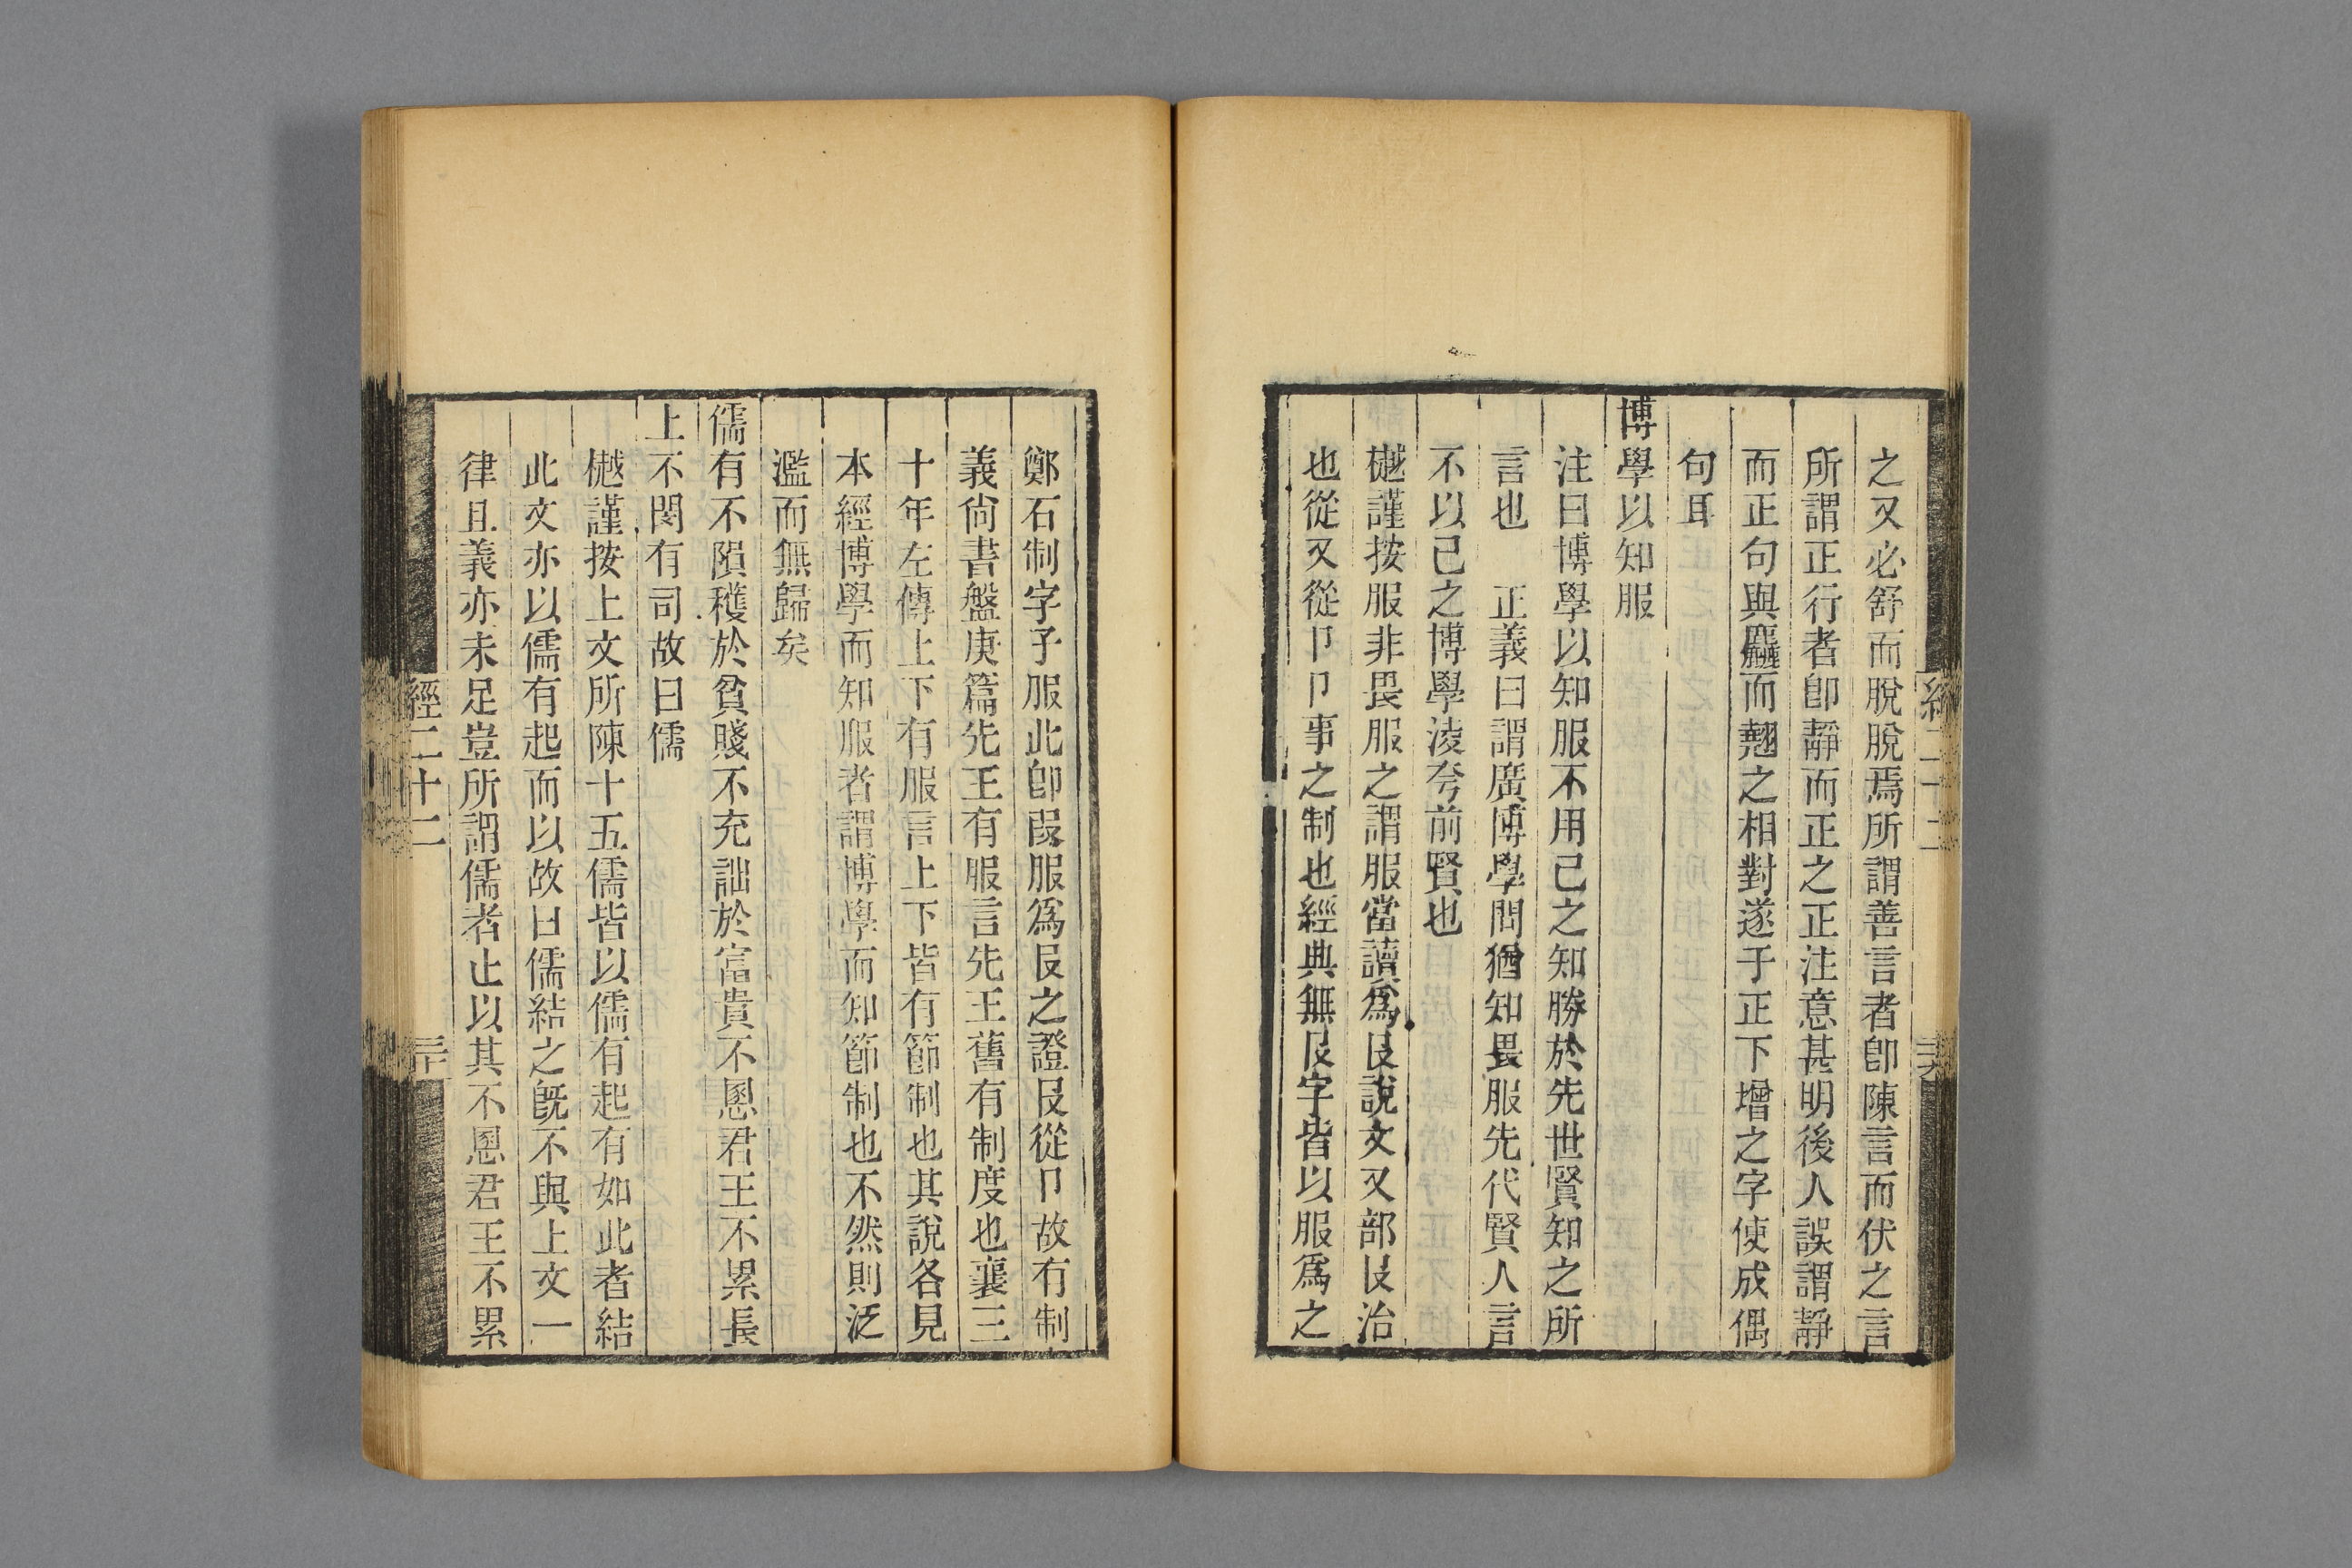 之又必舒而脫脫焉所謂善言者卽陳言而伏之言
所謂正行者卽靜而正之正注意甚明後人誤謂靜
而正句與麤而翹之相對遂于正下增之字使成偶
句耳
博學以知服
注曰博學以知服不用己之知勝於先世賢知之所
言也　正義曰謂廣博學問猶知畏服先代賢人言
不以己之博學淩夸前賢也
樾謹按服非畏服之謂服當讀爲𠬝說文又部𠬝治
也從又從卪卪事之制也經典無𠬝字皆以服爲之
鄭石制字子服此卽叚服爲𠬝之證𠬝從卪故有制
義尙書盤庚篇先王有服言先王舊有制度也襄三
十年左傳上下有服言上下皆有節制也其說各見
本經博學而知服者謂博學而知節制也不然則泛
濫而無歸矣
儒有不隕穫於貧賤不充詘於富貴不慁君王不累長
上不閔有司故曰儒
樾謹按上文所陳十五儒皆以儒有起有如此者結
此文亦以儒有起而以故曰儒結之旣不與上文一
律且義亦未足豈所謂儒者止以其不慁君王不累
經二十二